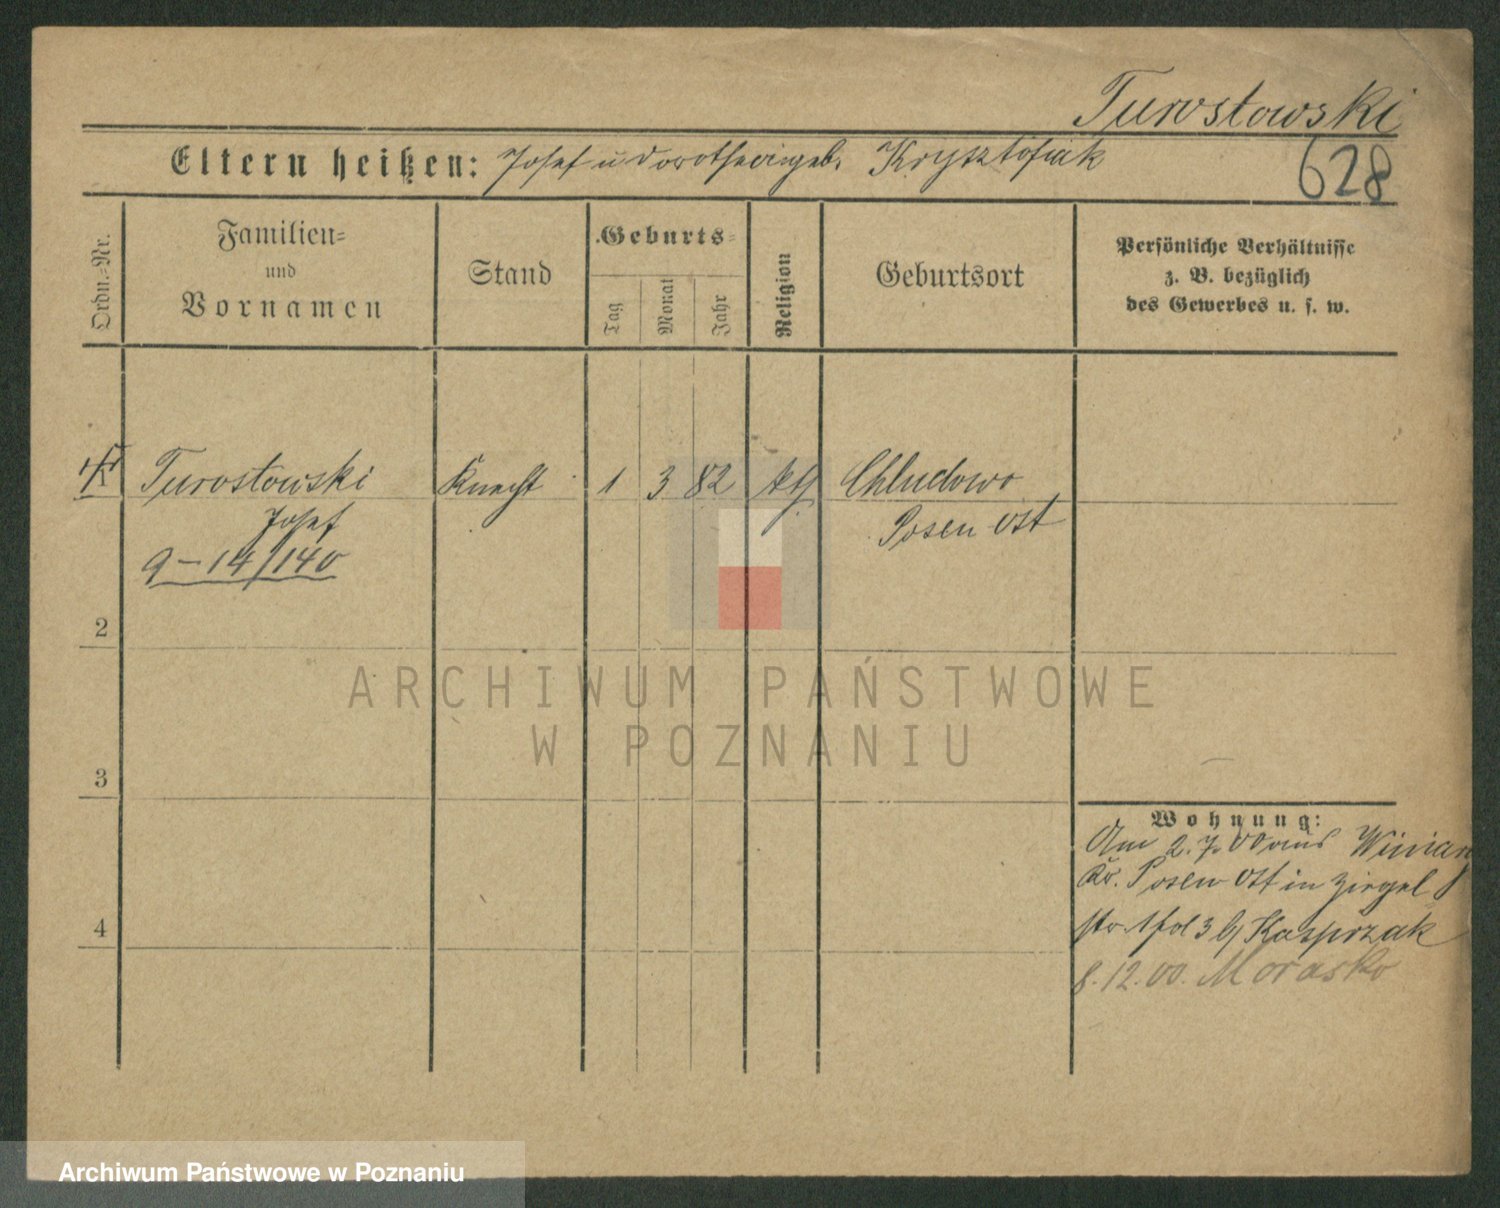 Turostowski
Eltern heißen: Josef u Dorothea geb. Krysztofiak
628
Ordn.-Nr.
Familien-
und
Vornamen
Stand
Geburts-
Tag
Monat
Jahr
Religion
Geburtsort
Persönliche Verhältnisse
z. B. bezüglich
des Gewerbes u. s. w.
Turostowski
Knecht
1
3
82
kth
Chludowo
Josef
Posen Ost
9-14/140
2
3
4
Wohnung:
Am 2.7.00 aus Winiary
Kr. Posen Ost in Ziegel
str. 1 fol 3 b/ Kasprzak
8.12.00. Morasko
ARCHIWUM PAŃSTWOWE
W POZNANIU
Archiwum Państwowe w Poznaniu